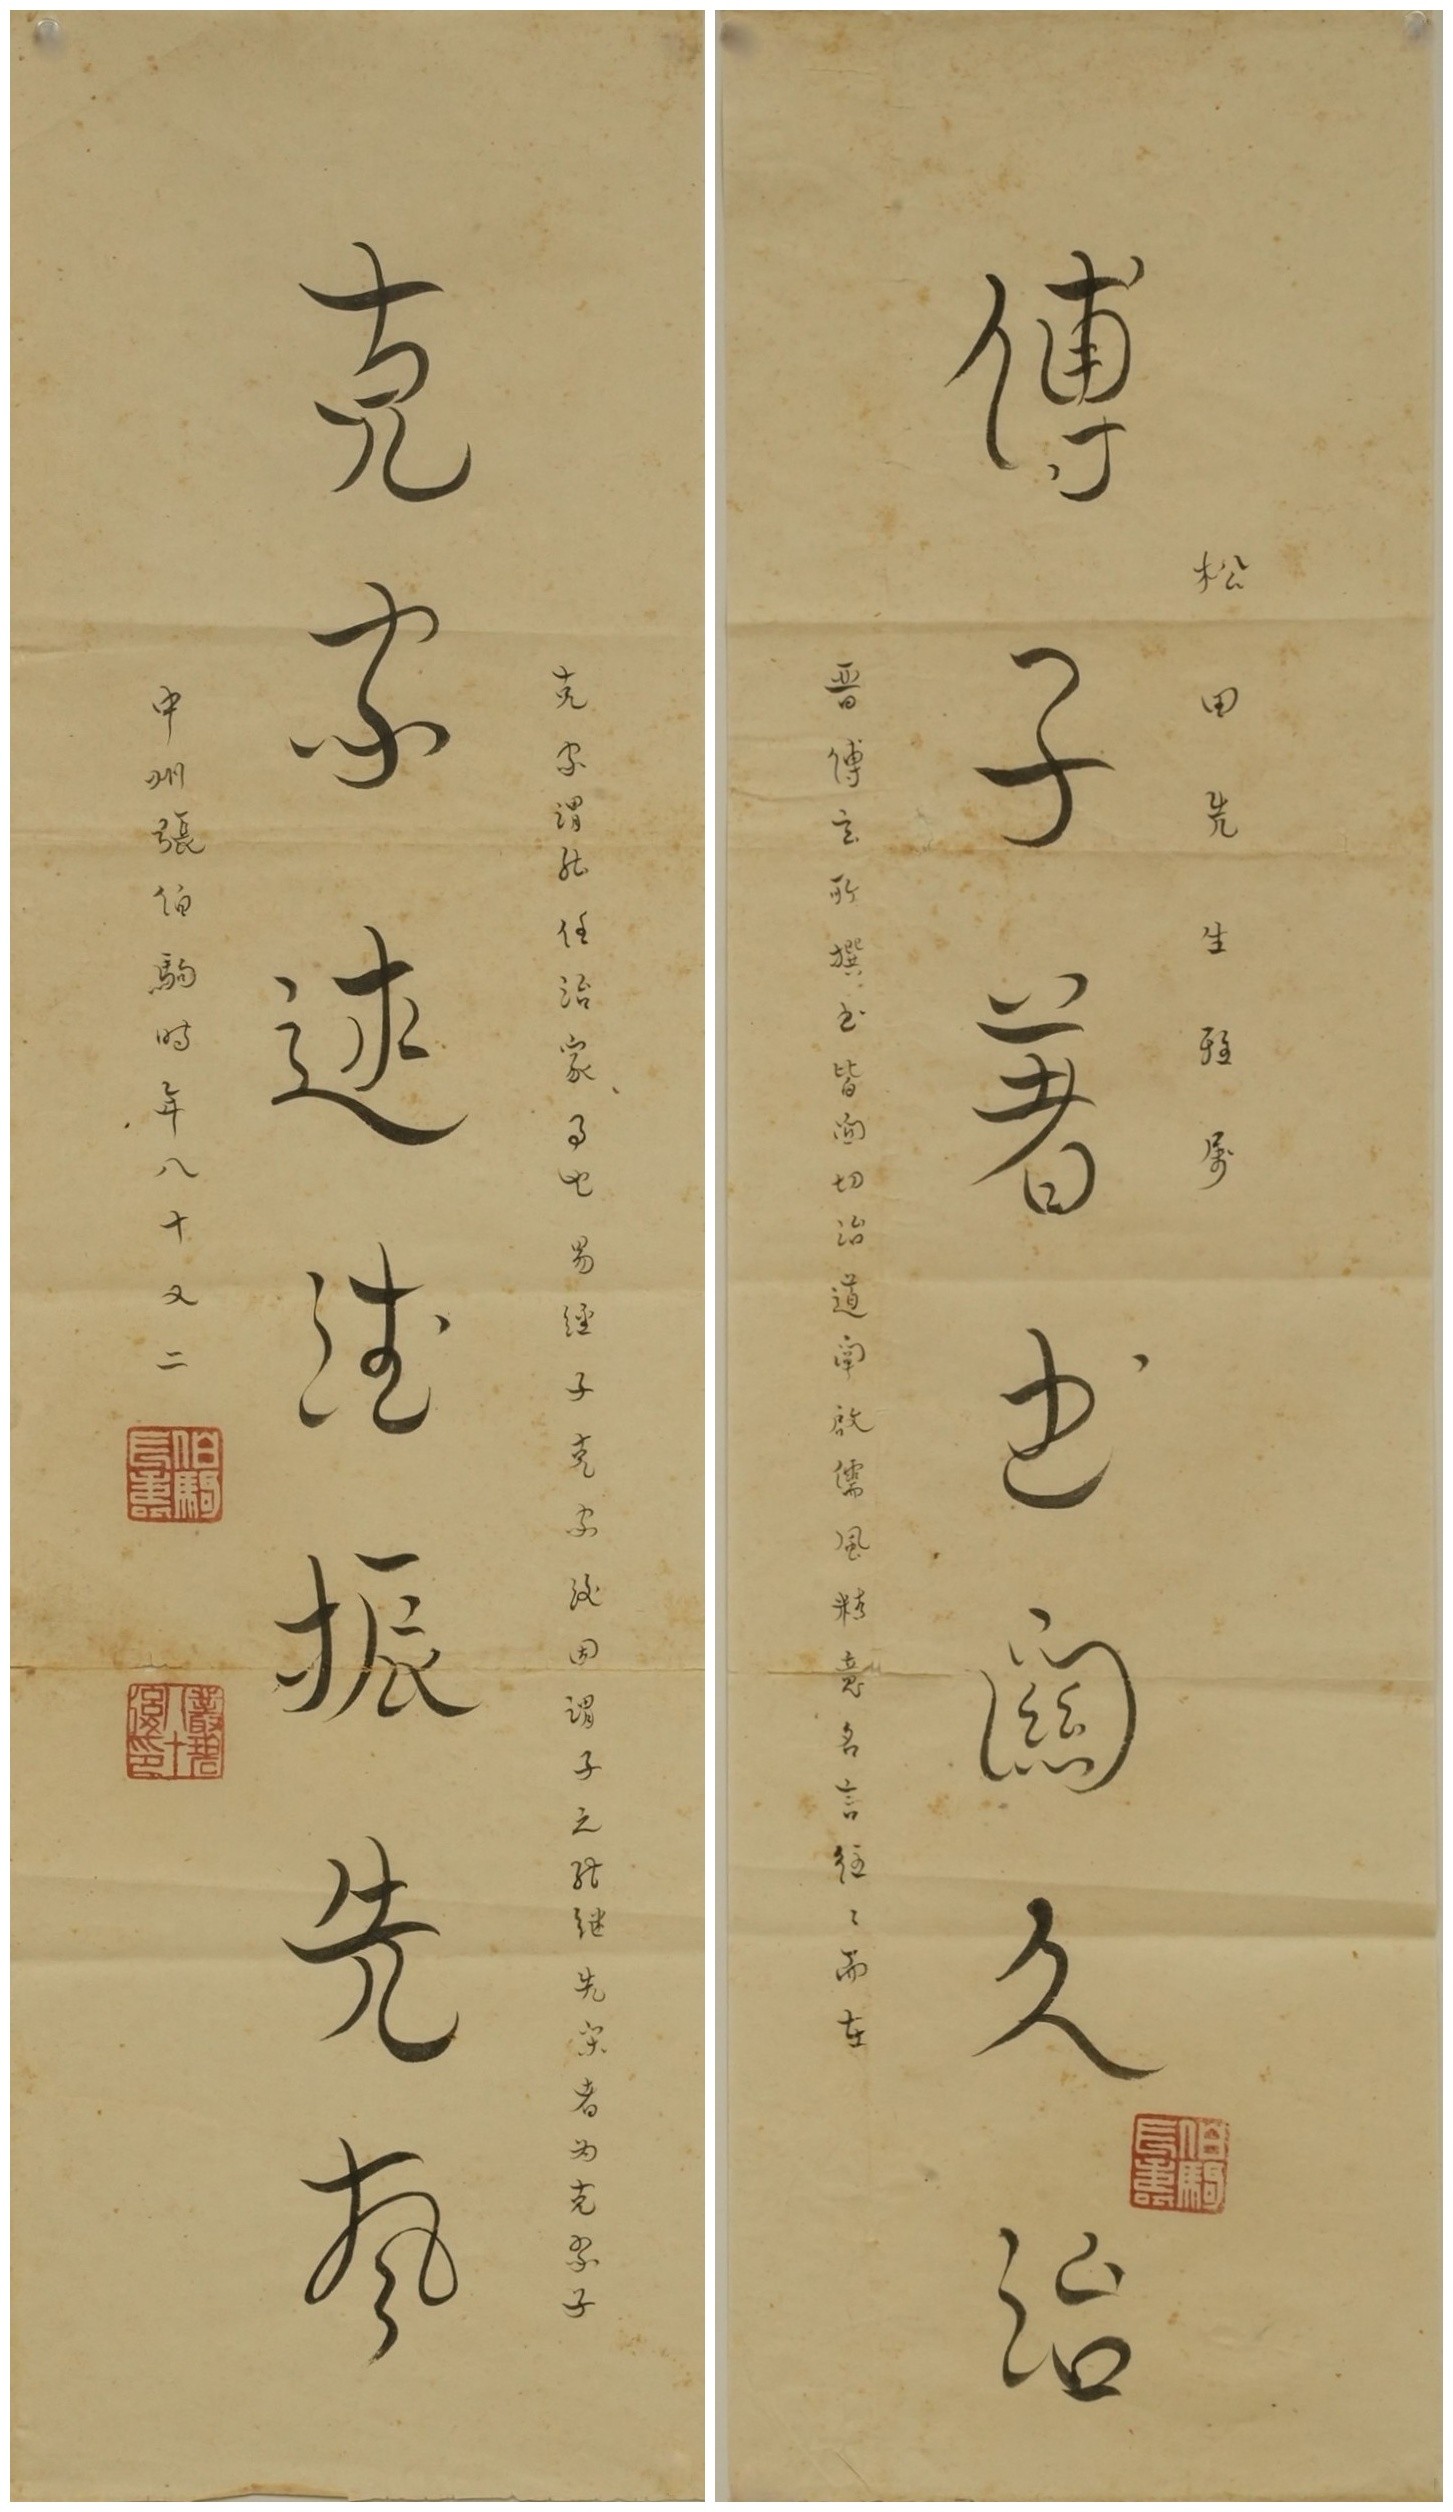 傅子著書關久治
松田先生雅屬
晋傅玄所撰書皆關切治道闡啟儒風精意名言往〻而在
伯駒長壽
克家述德振先風
克家謂能任治家事也易經子克家後因謂子之能继先業者为克家子
中州張伯駒時年八十又二
伯駒長壽
叢碧八十後印